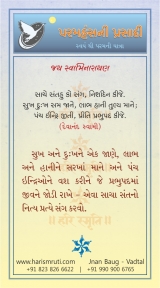 પરબ્રહ્મની પ્રસાદી
સ્વયં થી પરમની યાત્રા
જય સ્વામિનારાયણ
સાચે સંતહુ કો સંગ, નિશદિન કીજે.
સુખ દુઃખ સમ જાને, લાભ હાની તુલ્ય માને;
પંચ ઇન્દ્રિ જીતી, પ્રીતિ પ્રભુપદ કીજે.
(દેવાનંદ સ્વામી)
સુખ અને દુઃખને એક જાણે, લાભ
અને હાનીને સરખાં માને અને પંચ
ઇન્દ્રિઓને વશ કરીને જે પ્રભુપદમાં
જીવને જોડી રાખે - એવા સાચા સંતનો
નિત્ય પ્રત્યે સંગ કરવો.
www.harismruti.com
+91 823 826 6622
Jnan Baug - Vadtal
+91 990 900 6765